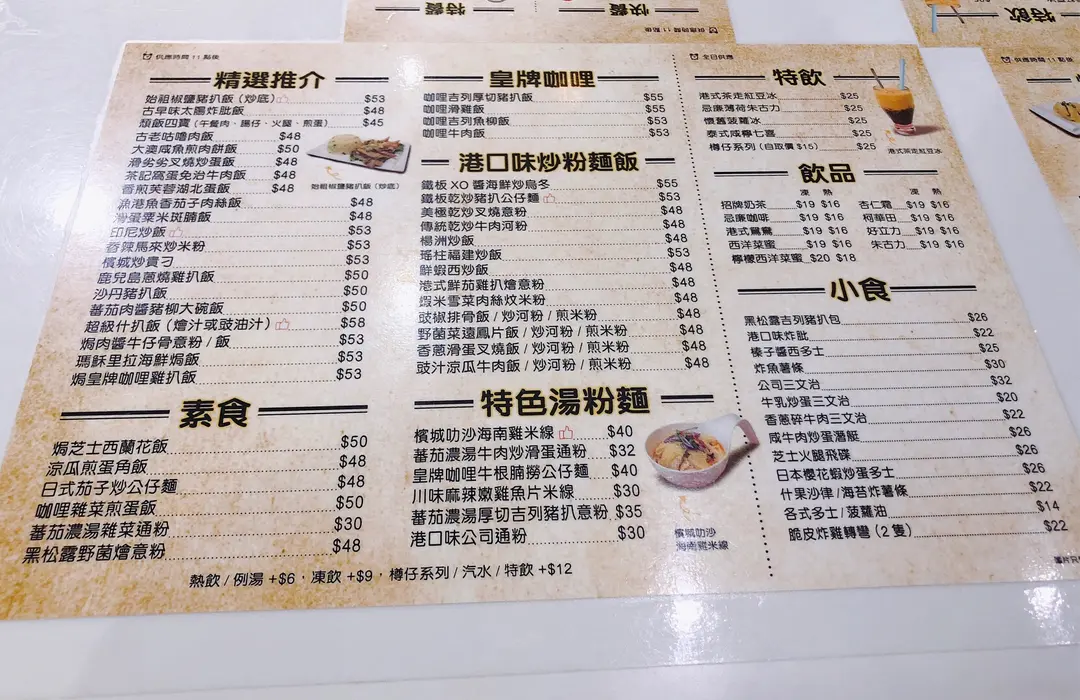 特餐
快餐
供應時間 11 點後
特飲
供應時間 11 點後
精選推介
始祖椒鹽豬扒飯 (炒底) $53
古早味太陽炸肶飯 $48
頹飯四寶 (午餐肉、腸仔、火腿、煎蛋) $45
古老咕嚕肉飯 $48
大澳咸魚煎肉餅飯 $50
滑劣劣叉燒炒蛋飯 $48
茶記窩蛋免治牛肉飯 $48
香煎芙蓉湖北蛋飯 $48
漁港魚香茄子肉絲飯 $48
滑蛋粟米斑腩飯 $48
印尼炒飯 $53
香辣馬來炒米粉 $53
檳城炒貴刁 $53
鹿兒島蔥燒雞扒飯 $50
沙丹豬扒飯 $50
蕃茄肉醬豬柳大碗飯 $50
超級什扒飯 (燴汁或豉油汁) $58
焗肉醬牛仔骨意粉 / 飯 $53
瑪穌里拉海鮮焗飯 $53
焗皇牌咖喱雞扒飯 $53
始祖椒鹽豬扒飯 (炒底)
素食
焗芝士西蘭花飯 $50
涼瓜煎蛋角飯 $48
日式茄子炒公仔麵 $48
咖喱雜菜煎蛋飯 $50
蕃茄濃湯雜菜通粉 $30
黑松露野菌燴意粉 $48
皇牌咖喱
咖喱吉列厚切豬扒飯 $55
咖喱滑雞飯 $55
咖喱吉列魚柳飯 $53
咖喱牛肉飯 $53
港口味炒粉麵飯
鐵板 XO 醬海鮮炒烏冬 $55
鐵板乾炒豬扒公仔麵 $53
美極乾炒叉燒意粉 $48
傳統乾炒牛肉河粉 $48
楊洲炒飯 $48
瑤柱福建炒飯 $53
鮮蝦西炒飯 $48
港式鮮茄雞扒燴意粉 $48
蝦米雪菜肉絲炆米粉 $48
豉椒排骨飯 / 炒河粉 / 煎米粉 $48
野菌菜遠鳳片飯 / 炒河粉 / 煎米粉 $48
香蔥滑蛋叉燒飯 / 炒河粉 / 煎米粉 $48
豉汁涼瓜牛肉飯 / 炒河粉 / 煎米粉 $48
特色湯粉麵
檳城叻沙海南雞米線 $40
蕃茄濃湯牛肉炒滑蛋通粉 $32
皇牌咖喱牛根腩撈公仔麵 $40
川味麻辣嫩雞魚片米線 $30
蕃茄濃湯厚切吉列豬扒意粉 $35
港口味公司通粉 $30
檳城叻沙
海南雞米線
熱飲 / 例湯 +$6，凍飲 +$9，樽仔系列 / 汽水 / 特飲 +$12
全日供應
特飲
港式茶走紅豆冰 $25
忌廉薄荷朱古力 $25
懷舊菠蘿冰 $25
泰式咸檸七喜 $25
樽仔系列 (自取價 $15) $25
港式茶走紅豆冰
飲品
凍 熱 凍 熱
招牌奶茶 $19 $16 杏仁霜 $19 $16
忌廉咖啡 $19 $16 柯華田 $19 $16
港式鴛鴦 $19 $16 好立力 $19 $16
西洋菜蜜 $19 $16 朱古力 $19 $16
檸檬西洋菜蜜 $20 $18
小食
黑松露吉列豬扒包 $26
港口味炸肶 $22
榛子醬西多士 $25
炸魚薯條 $30
公司三文治 $32
牛乳炒蛋三文治 $20
香蔥碎牛肉三文治 $22
咸牛肉炒蛋潛艇 $26
芝士火腿飛碟 $26
日本櫻花蝦炒蛋多士 $26
什果沙律 / 海苔炸薯條 $22
各式多士 / 菠蘿油 $14
脆皮炸雞轉彎 (2 隻) $22